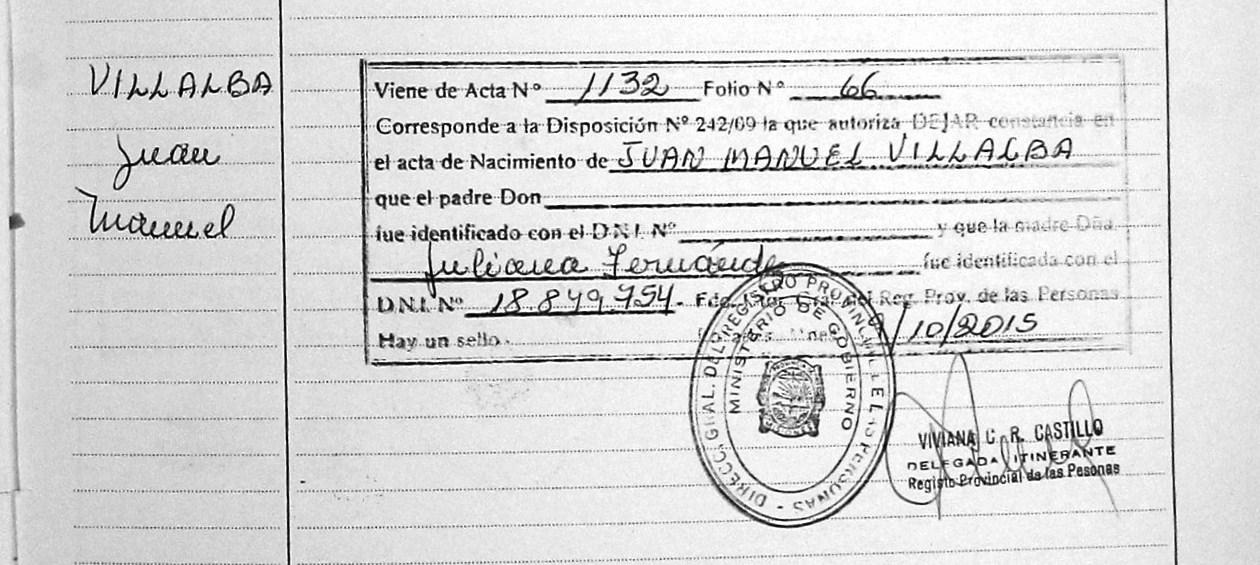 VILLALBA
Juan
Manuel
Viene de Acta Nº 1132 Folio Nº 66
Corresponde a la Disposición Nº 242/09 la que autoriza DEJAR constancia en
el acta de Nacimiento de JUAN MANUEL VILLALBA
que el padre Don
fue identificado con el D.N.I. Nº y que la madre Dña.
Juliana Fernánde fue identificada con el
D.N.I. Nº 18.849.954. Fdo. Reg. Prov. de las Personas
Hay un sello. /10/2015
DIRECC. GRAL. DEL REGISTRO PROVINCIAL DE LAS PERSONAS
MINISTERIO DE GOBIERNO
VIVIANA C. R. CASTILLO
DELEGADA ITINERANTE
Registo Provincial de las Pesonas